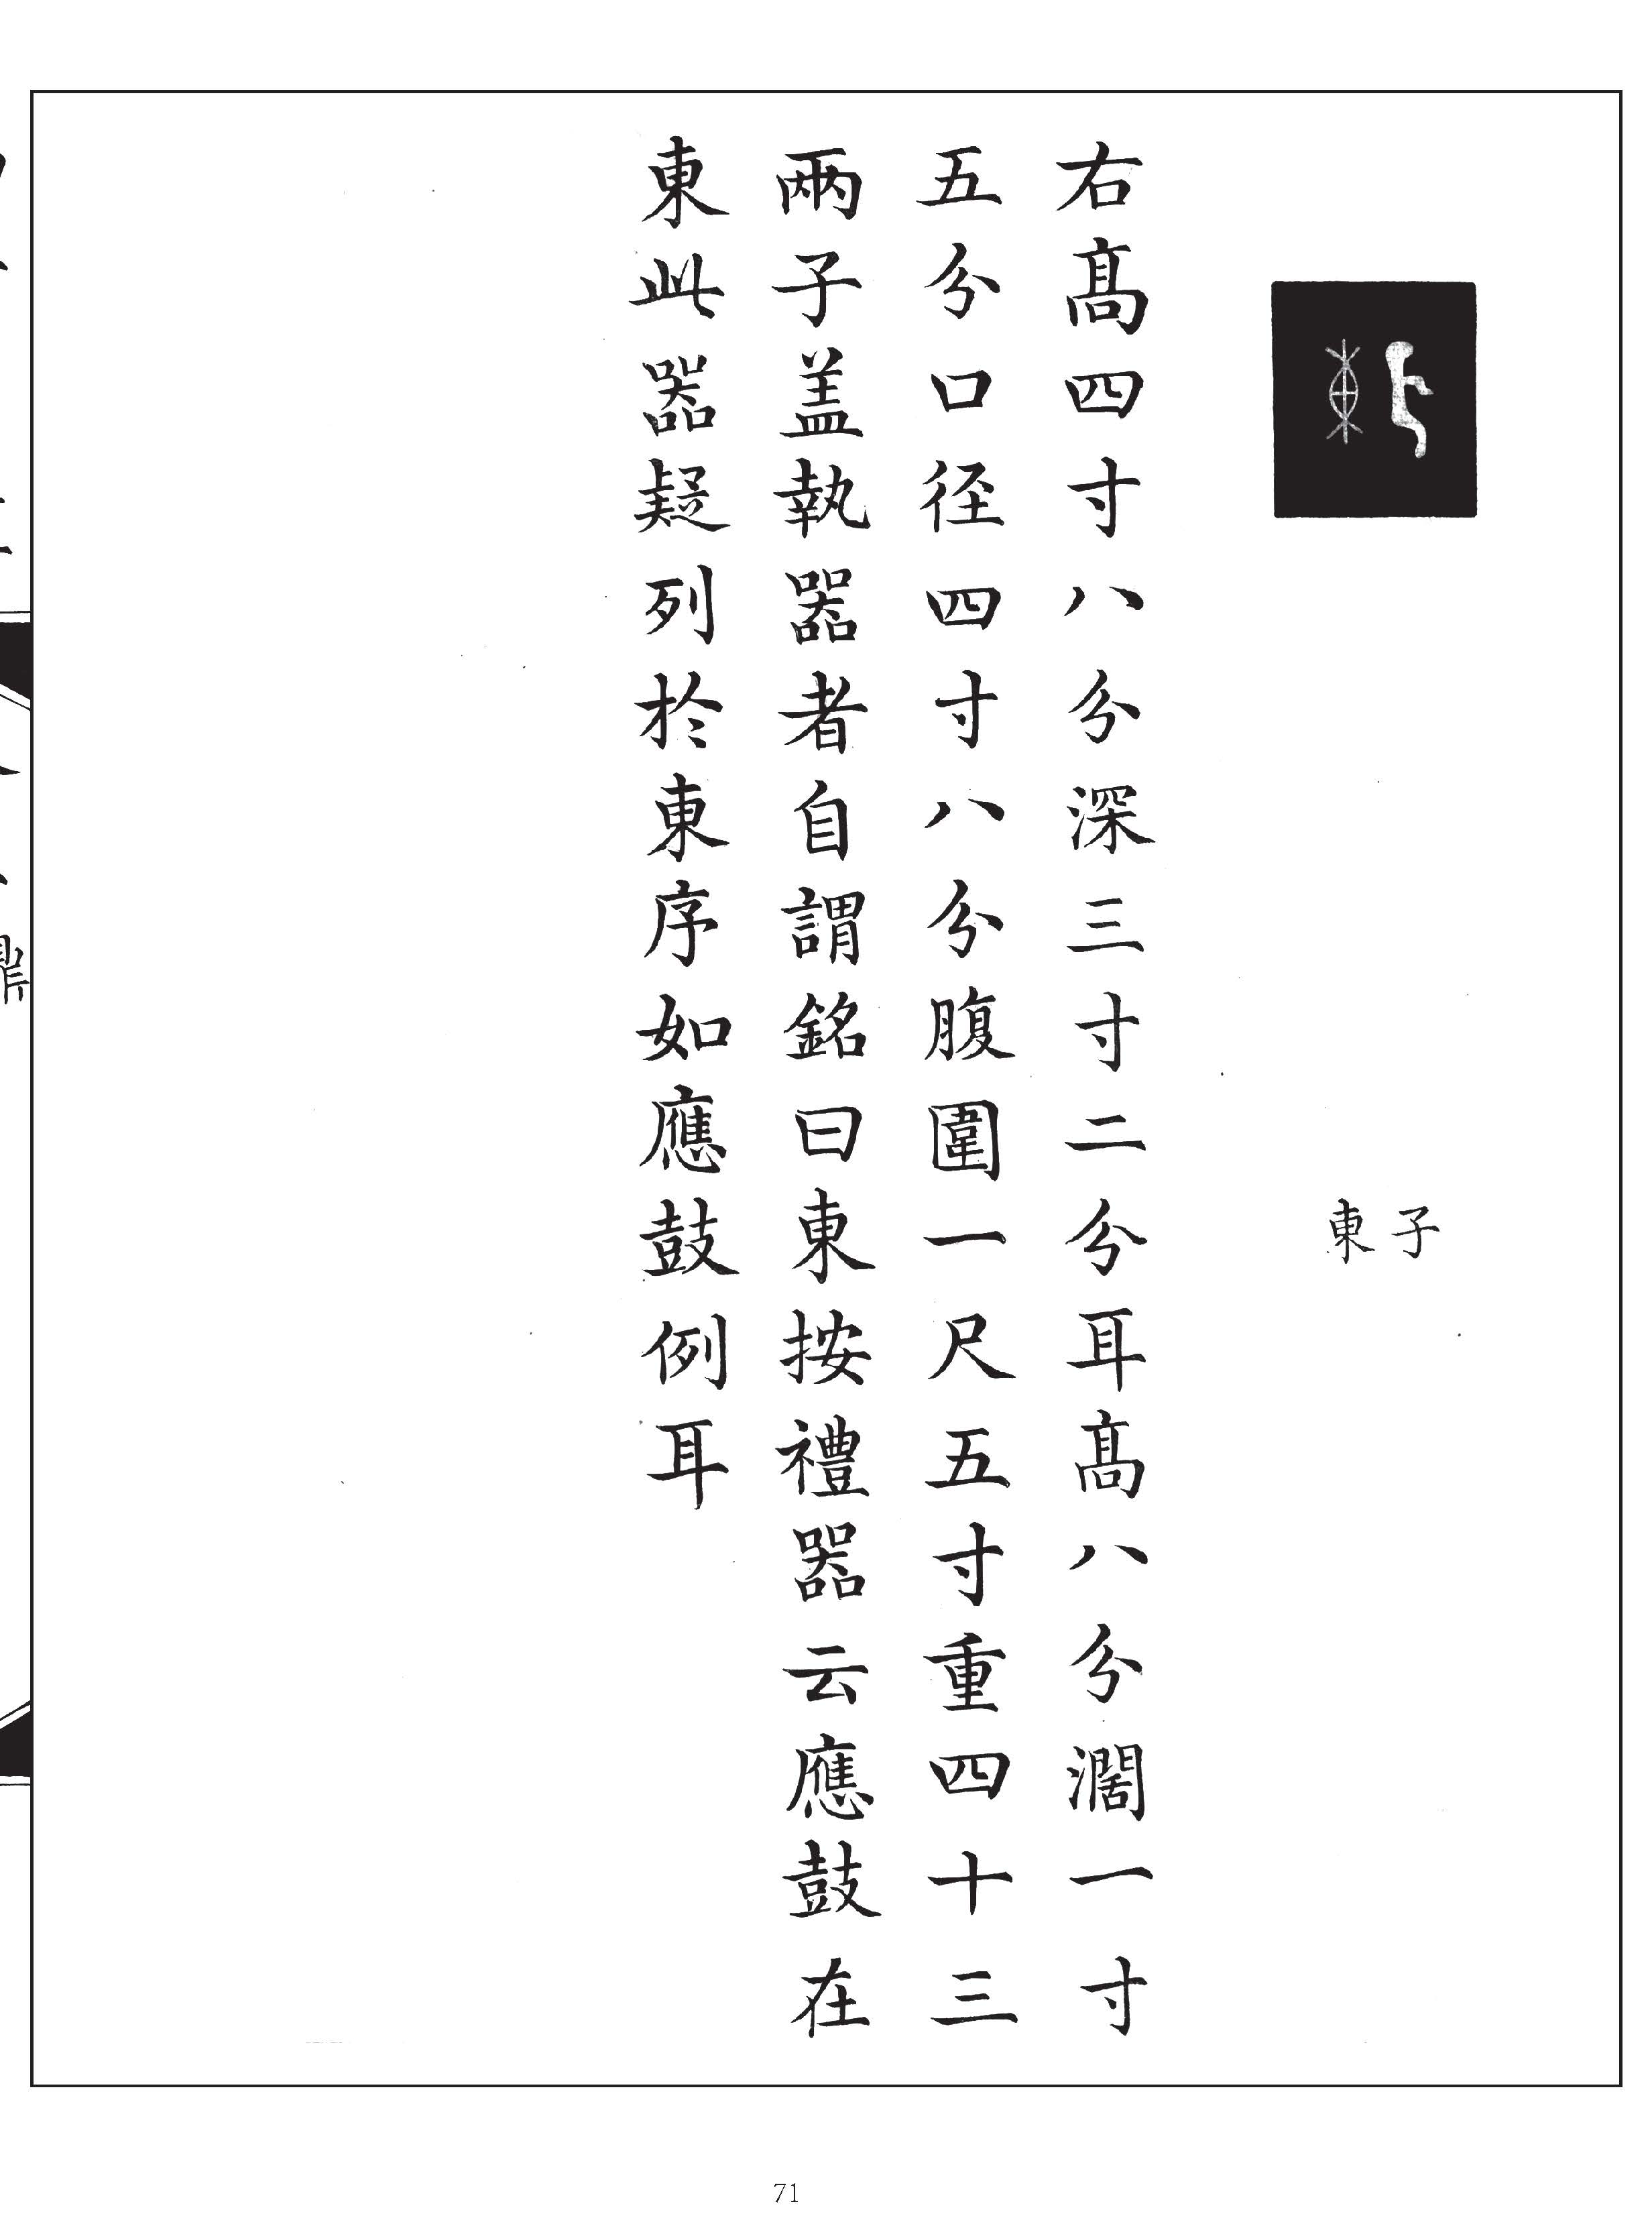 子
東
右髙四寸八分深三寸二分耳髙八分濶一寸
五分口径四寸八分腹圍一尺五寸重四十三
兩子盖執器者自謂銘曰東按禮器云應鼓在
東此器疑列於東序如應鼓例耳
71